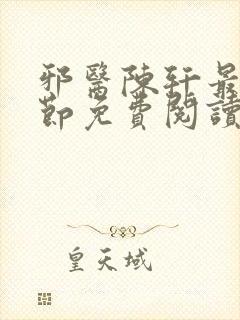 邪醫陳軒最
節免費閱讀
皇天域